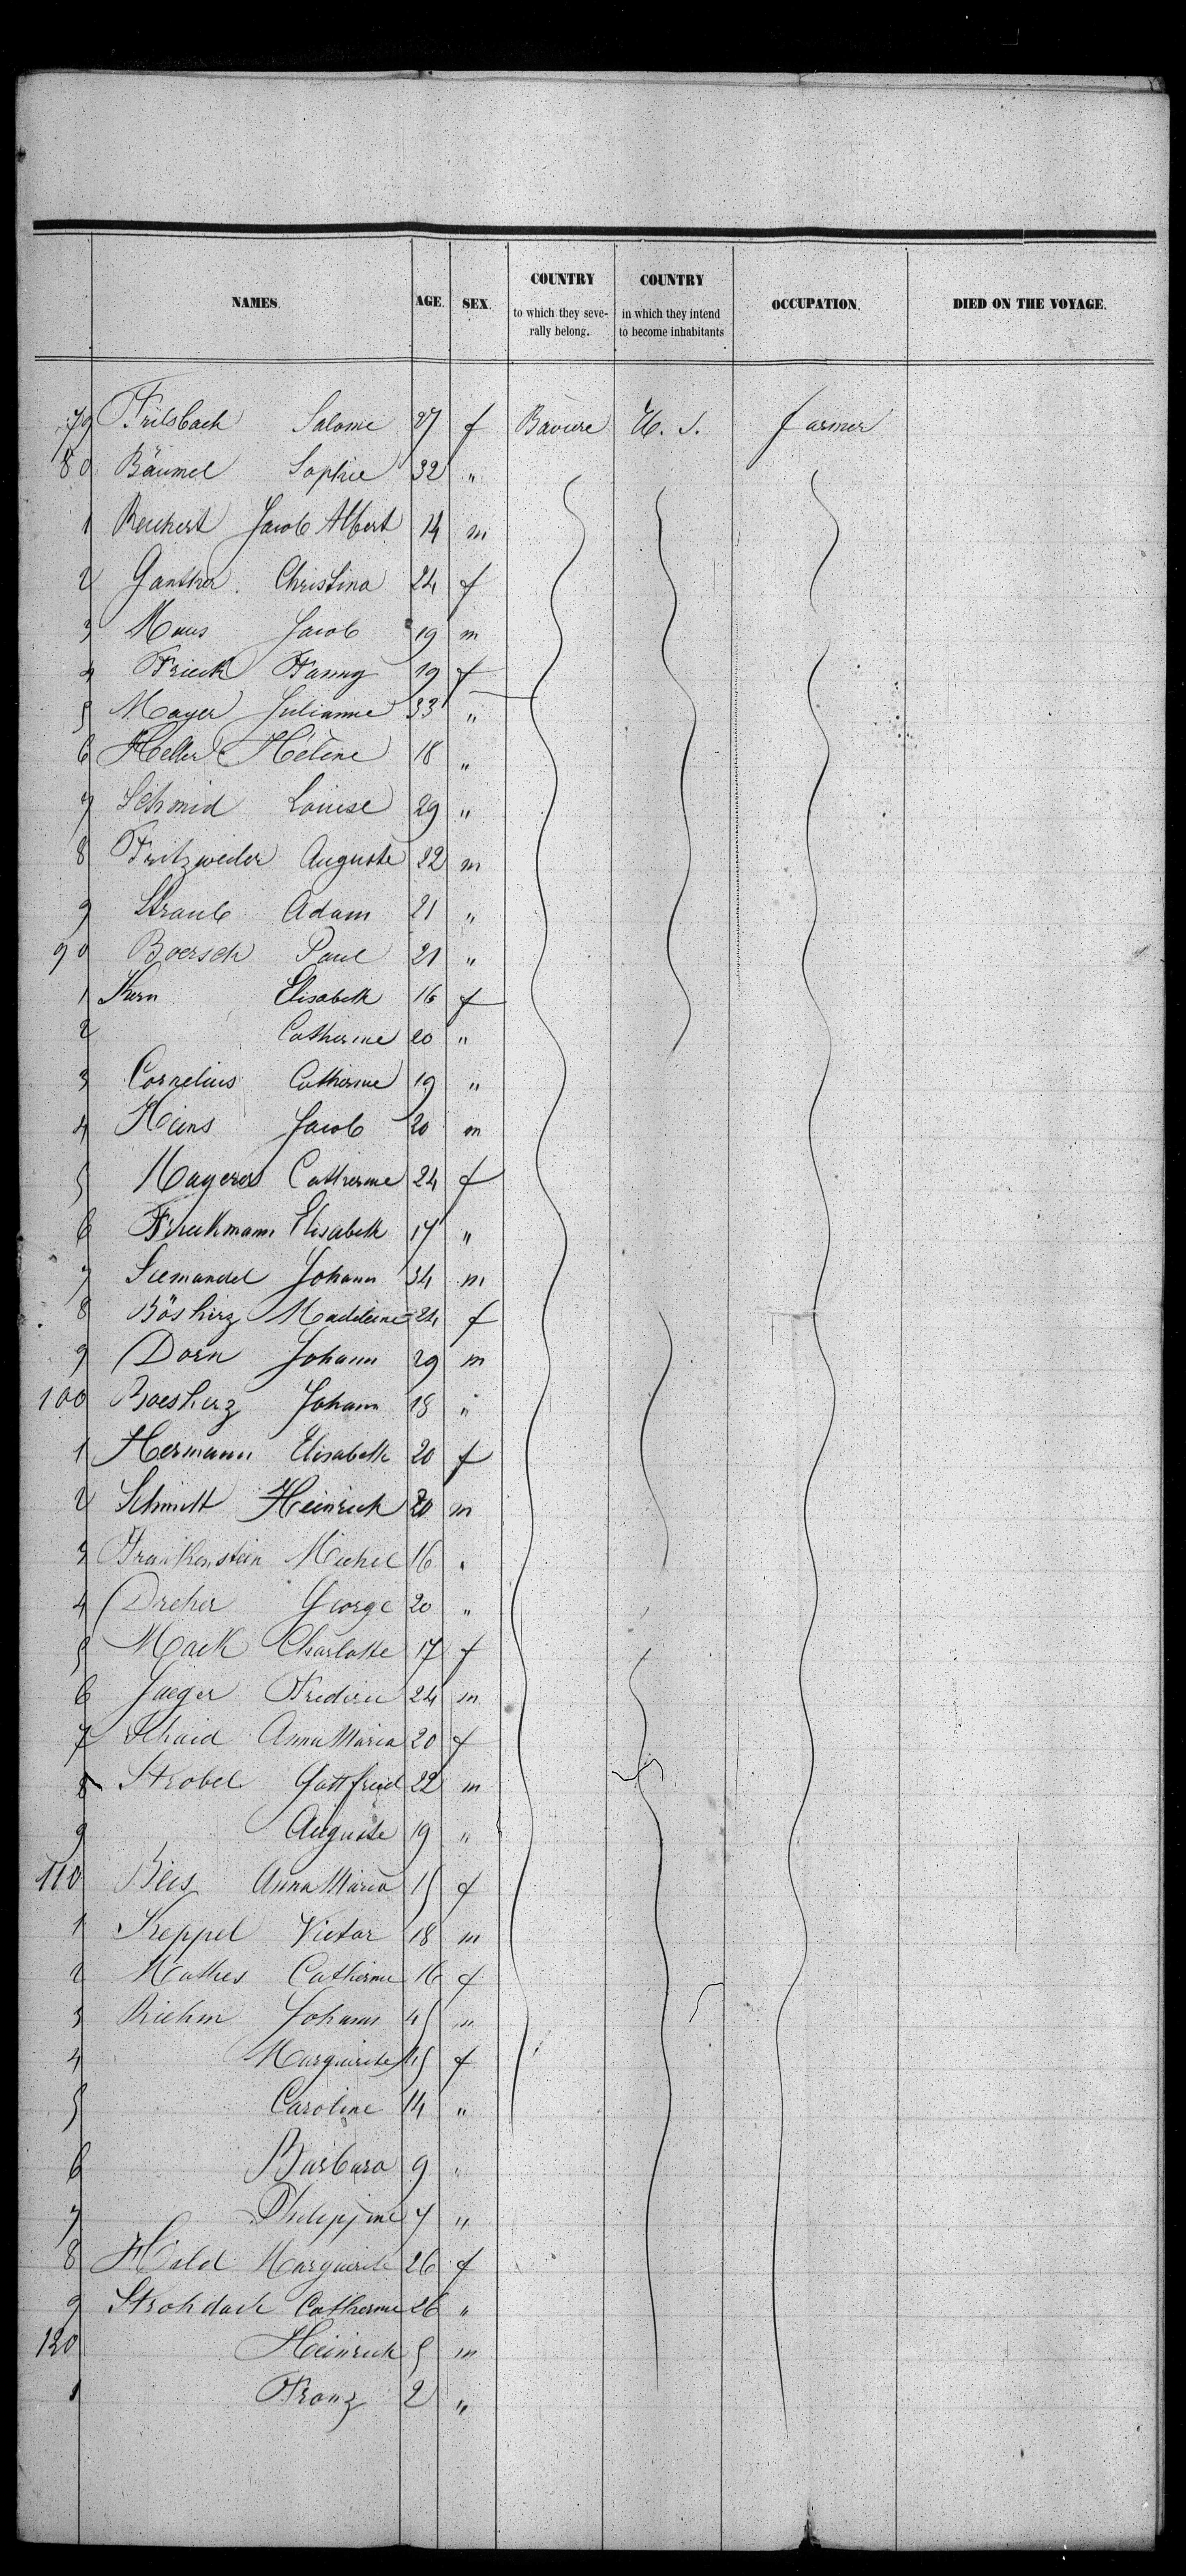 NAMES. AGE. SEX. COUNTRY to which they severally belong. COUNTRY in which they intend to become inhabitants OCCUPATION. DIED ON THE VOYAGE.
79 Salome 27 f Baviere U. S. farmer
80 Bäumel Sophie 32 "
1 Reichert Jacob Albert 14 m
2 Ganther Christina 24 f
3 Maus Jacob 19 m
4 Frick Fanny 19 f
5 Mayer Julianne 33 "
6 Heller Hélène 18 "
7 Schmid Louise 29 "
8 Fritzweiler Auguste 22 m
9 Straub Adam 21 "
90 Boersch Paul 21 "
1 Kern Elisabeth 16 f
2 Catherine 20 "
3 Cornelius Catherine 19 "
4 Heins Jacob 20 m
5 Catherine 24 f
6 Elisabeth 17 "
7 Siemandel Johann 34 m
8 Bösherz Madeleine 24 f
9 Dorn Johann 29 m
100 Boesherz Johann 18 "
1 Hermann Elisabeth 20 f
2 Schmitt Heinrich 20 m
3 Frankenstein Michel 16 "
4 Dreher George 20 "
5 Mack Charlotte 17 f
6 Jaeger Frederic 24 m
7 Schaid Anna Maria 20 f
8 Strobel Gottfried 22 m
9 Auguste 19 "
110 Bies Anna Maria 15 f
1 Keppel Victor 18 m
2 Mathes Catherine 16 f
3 Riehm Johann 45 m
4 Marguerite 45 f
5 Caroline 14 "
6 Barbara 9 "
7 Philippine 7 "
8 Hald Marguerite 26 f
9 Strohdach Catherine 26 "
120 Heinrich 5 m
1 Franz 2 "